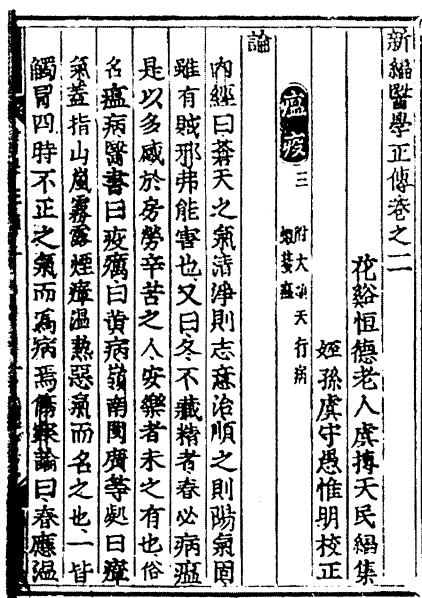 新編醫學正傳卷之二
花谿恒德老人虞摶天民編集
姪孫虞守愚惟明校正
瘟疫三
附大頭天行病
蝦蟇瘟
論
內經曰蒼天之氣清淨則志意治順之則陽氣固
雖有賊邪弗能害也又曰冬不藏精者春必病瘟
是以多感於房勞辛苦之人安樂者未之有也俗
名瘟病醫書曰疫癘曰黃病嶺南閩廣等處曰瘴
氣蓋指山嵐霧露煙瘴温熱惡氣而名之也一皆
觸冒四時不正之氣而爲病焉傷寒論曰春應温